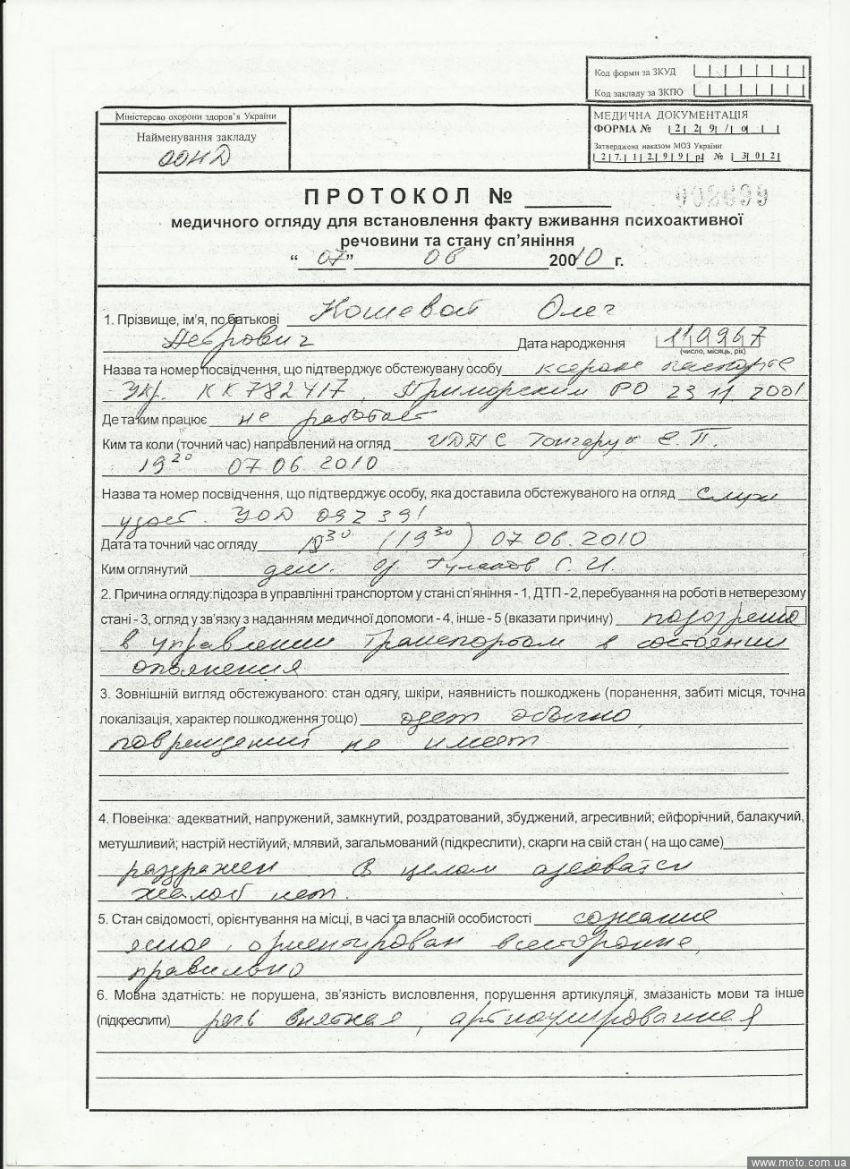 Код форми за ЗКУД
Код закладу за ЗКПО
Міністерсво охорони здоров'я України
Найменування закладу
ООНД
МЕДИЧНА ДОКУМЕНТАЦІЯ
ФОРМА № 229/о
Затверджена наказом МОЗ України
27.12.99р № 302
ПРОТОКОЛ №
медичного огляду для встановлення факту вживання психоактивної
речовини та стану сп'яніння
“ 07 ” 06 20010 г.
1. Прізвище, ім'я, по батькові Кошевой Олег
Петрович Дата народження 110967
(число, місяць, рік)
Назва та номер посвідчення, що підтверджує обстежувану особу ксерокс паспорте
Укр. КК782417, Приморским РО 23 11 2001
Де та ким працює не работает
Ким та коли (точний час) направлений на огляд ИДПС Гончарук Е.П.
19 20 07 06 2010
Назва та номер посвідчення, що підтверджує особу, яка доставила обстежуваного на огляд служ
удост. УОД 092391
Дата та точний час огляду (19 30) 07 06. 2010
Ким оглянутий С. И.
2. Причина огляду:підозра в управлінні транспортом у стані сп'яніння - 1, ДТП - 2,перебування на роботі в нетверезому
стані - 3, огляд у зв'язку з наданням медичної допомоги - 4, інше - 5 (вказати причину) подозрение
в управлении транспортом в состоянии
опьянения
3. Зовнішній вигляд обстежуваного: стан одягу, шкіри, наявниість пошкоджень (поранення, забиті місця, точна
локалізація, характер пошкодження тощо) одет обычно,
повреждений не имеет
4. Повеінка: адекватний, напружений, замкнутий, роздратований, збуджений, агресивний; ейфорічний, балакучий,
метушливий; настрій нестійуий, млявий, загальмований (підкреслити), скарги на свій стан ( на що саме)
раздражен В целом адекватен
жалоб нет.
5. Стан свідомості, орієнтування на місці, в часі та власній особистості сознание
ясное, ориентирован всесторонне,
правильно
6. Мовна здатність: не порушена, зв'язність висловлення, порушення артикуляції, змазаність мови та інше
(підкреслити) речь внятная, артикулированная
www.moto.com.ua